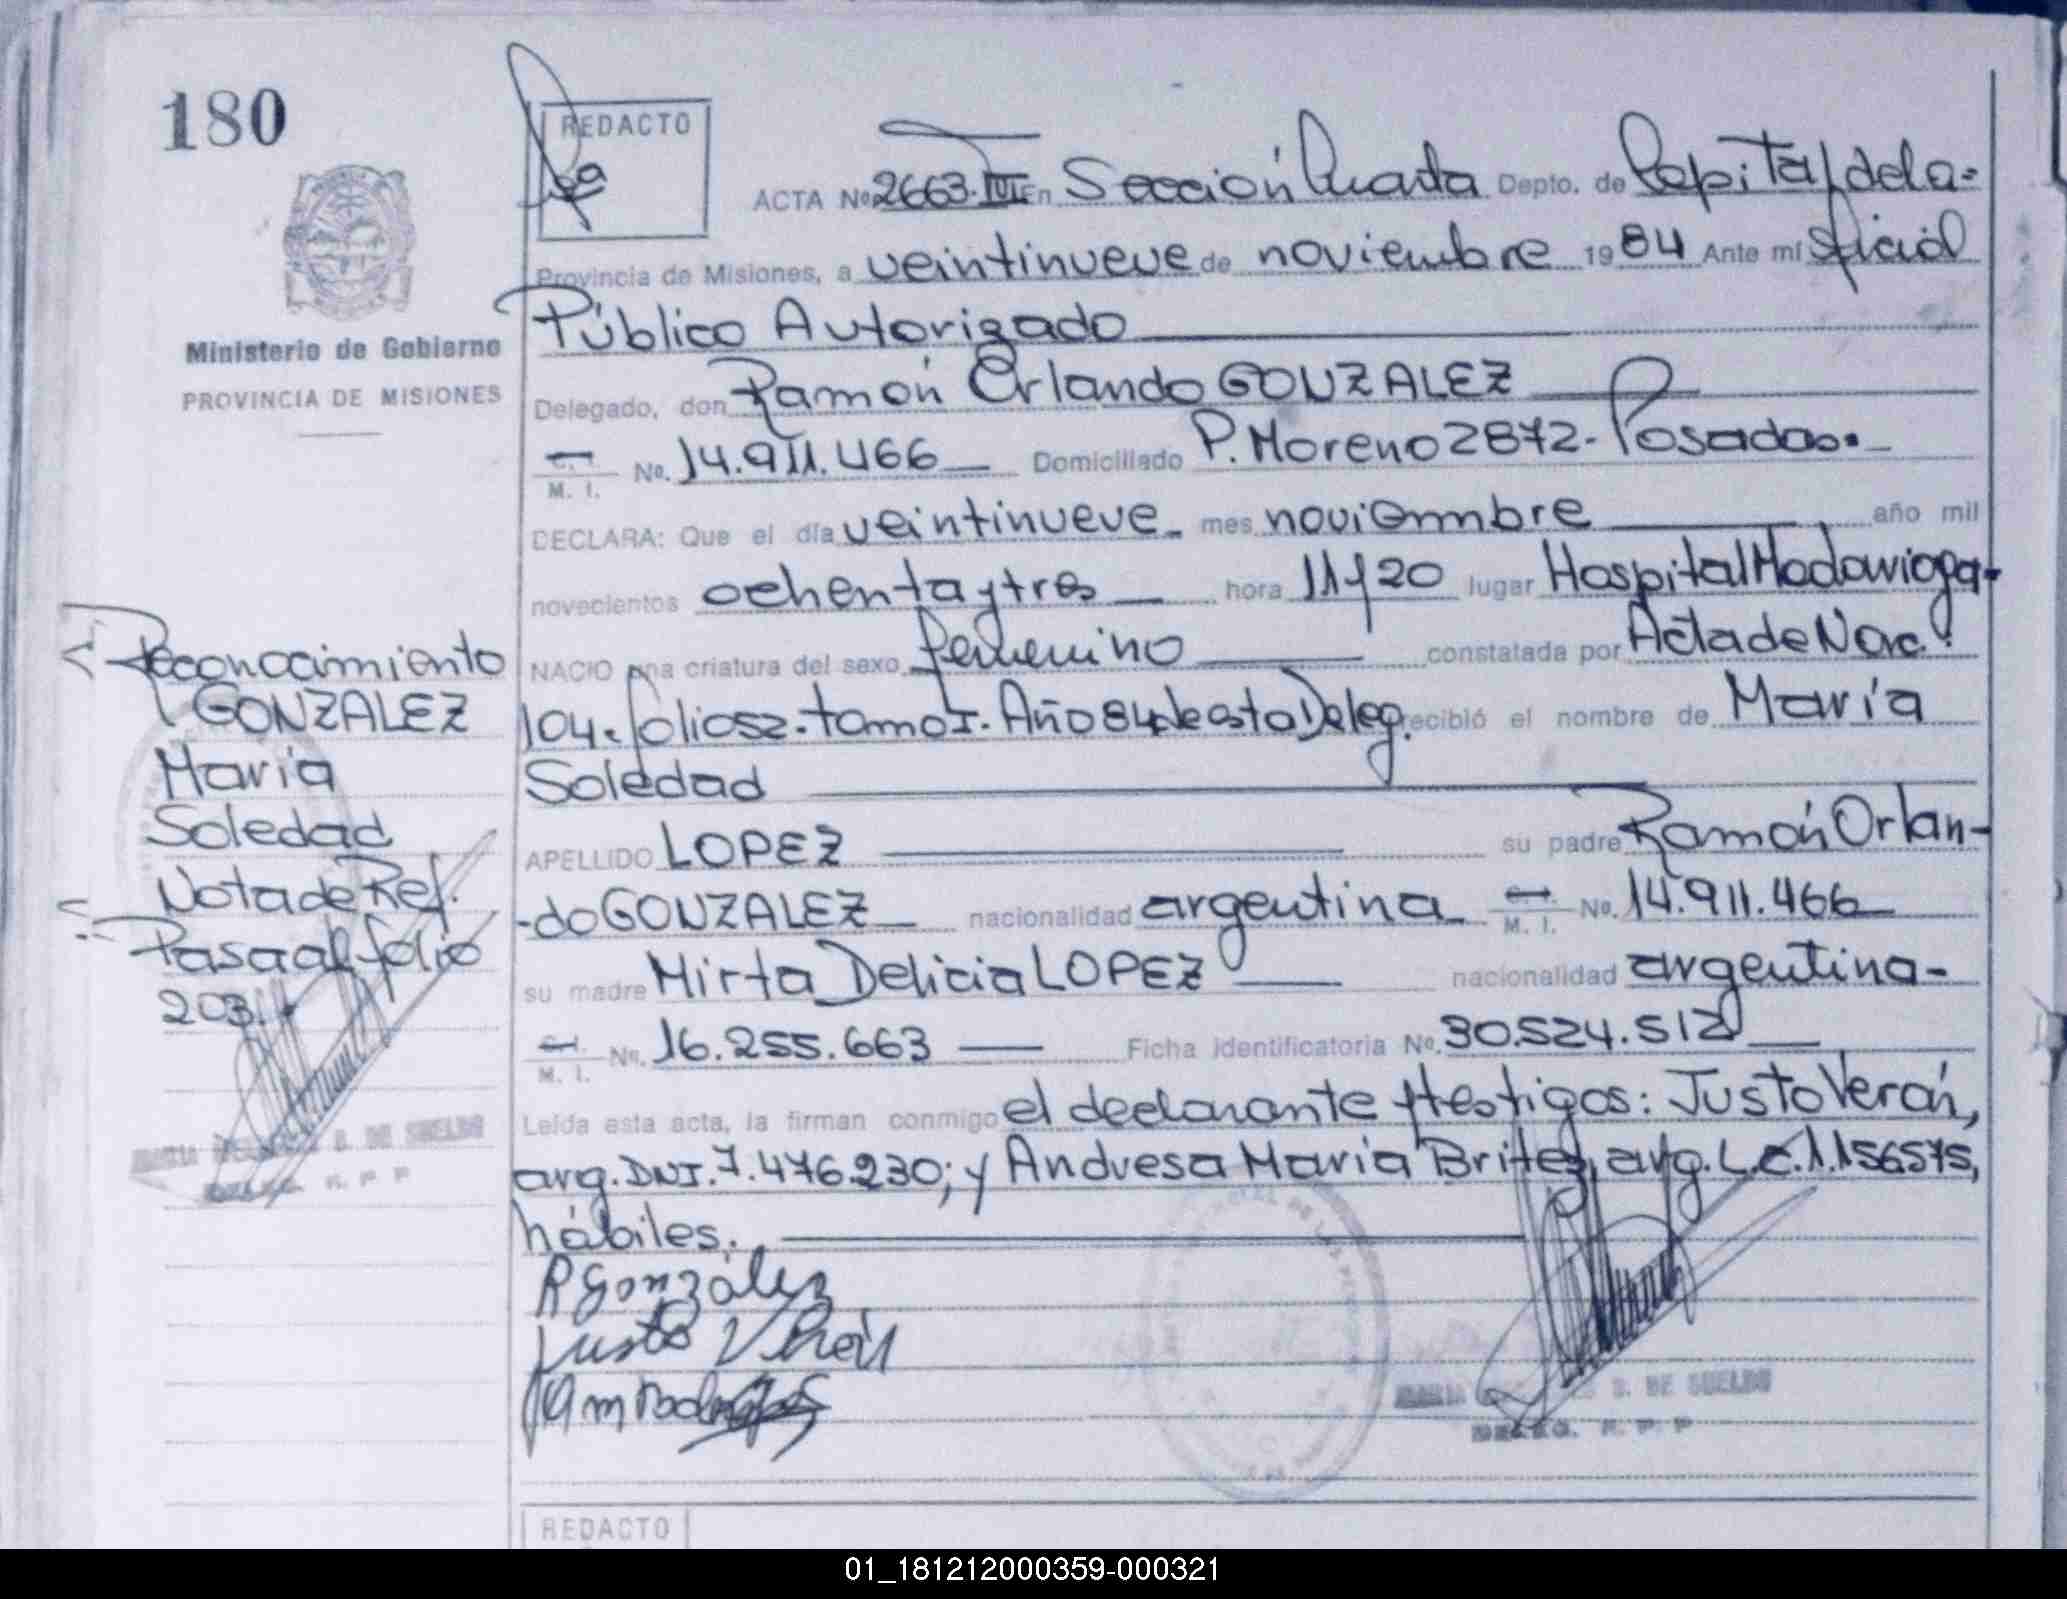 180
REDACTO
ACTA Nº 2663-III En Sección Cuarta Depto. de Capital de la-
Provincia de Misiones, a veintinueve de noviembre 1984 Ante mí Oficial
Público Autorizado
Ministerio de Gobierno
PROVINCIA DE MISIONES
Delegado, don Ramón Orlando GONZALEZ
M. I. No. 14.911.466 Domiciliado P. Moreno 2872- Posadas.-
DECLARA: Que el día veintinueve mes noviembre año mil
novecientos ochenta y tres hora 11 y 20 lugar Hospital Madariaga-
NACIO una criatura del sexo femenino constatada por Acta de Nac.
104- folio 52- tomo I- Año 84 de esta Deleg. recibió el nombre de María
Soledad
APELLIDO LOPEZ su padre Ramón Orlan-
-do GONZALEZ nacionalidad argentina M. I. No. 14.911.466
su madre Mirta Delicia LOPEZ nacionalidad argentina-
M. I. No. 16.255.663 Ficha identificatoria No. 30.524.512
Leída esta acta, la firman conmigo el declarante y testigos: Justo Verón,
arg. DNI. 7.476.230; y Andresa María Britez, arg. L.C. 1.156575,
hábiles.
R González
Justo Verón
Reconocimiento
GONZALEZ
María
Soledad
Nota de Ref.
Pasa al folio
203.
MARIA B. DE SUELDO
DELEG. R. P. P
MARIA B. DE SUELDO
DELEG. R. P. P
REDACTO
01_181212000359-000321